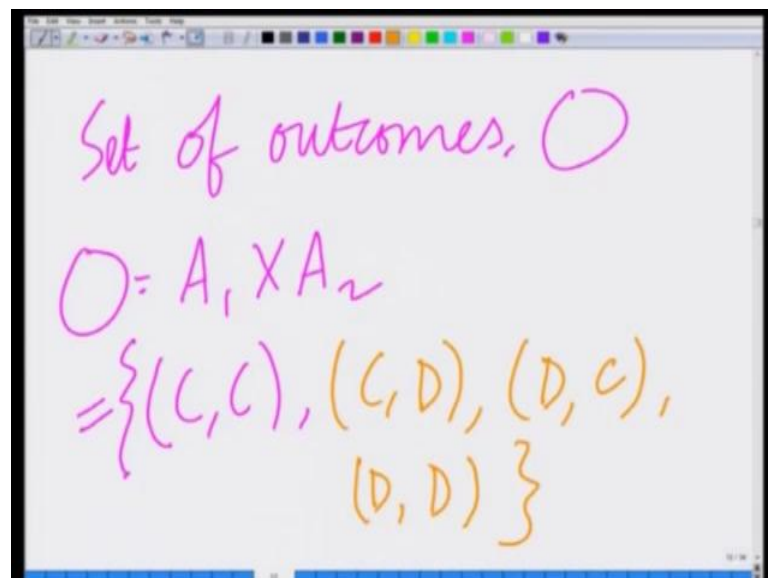 File Edit View Insert Actions Tools Help
Set of outcomes. O
O = A₁ X A₂
= {(C,C), (C,D), (D,C),
(D,D) }